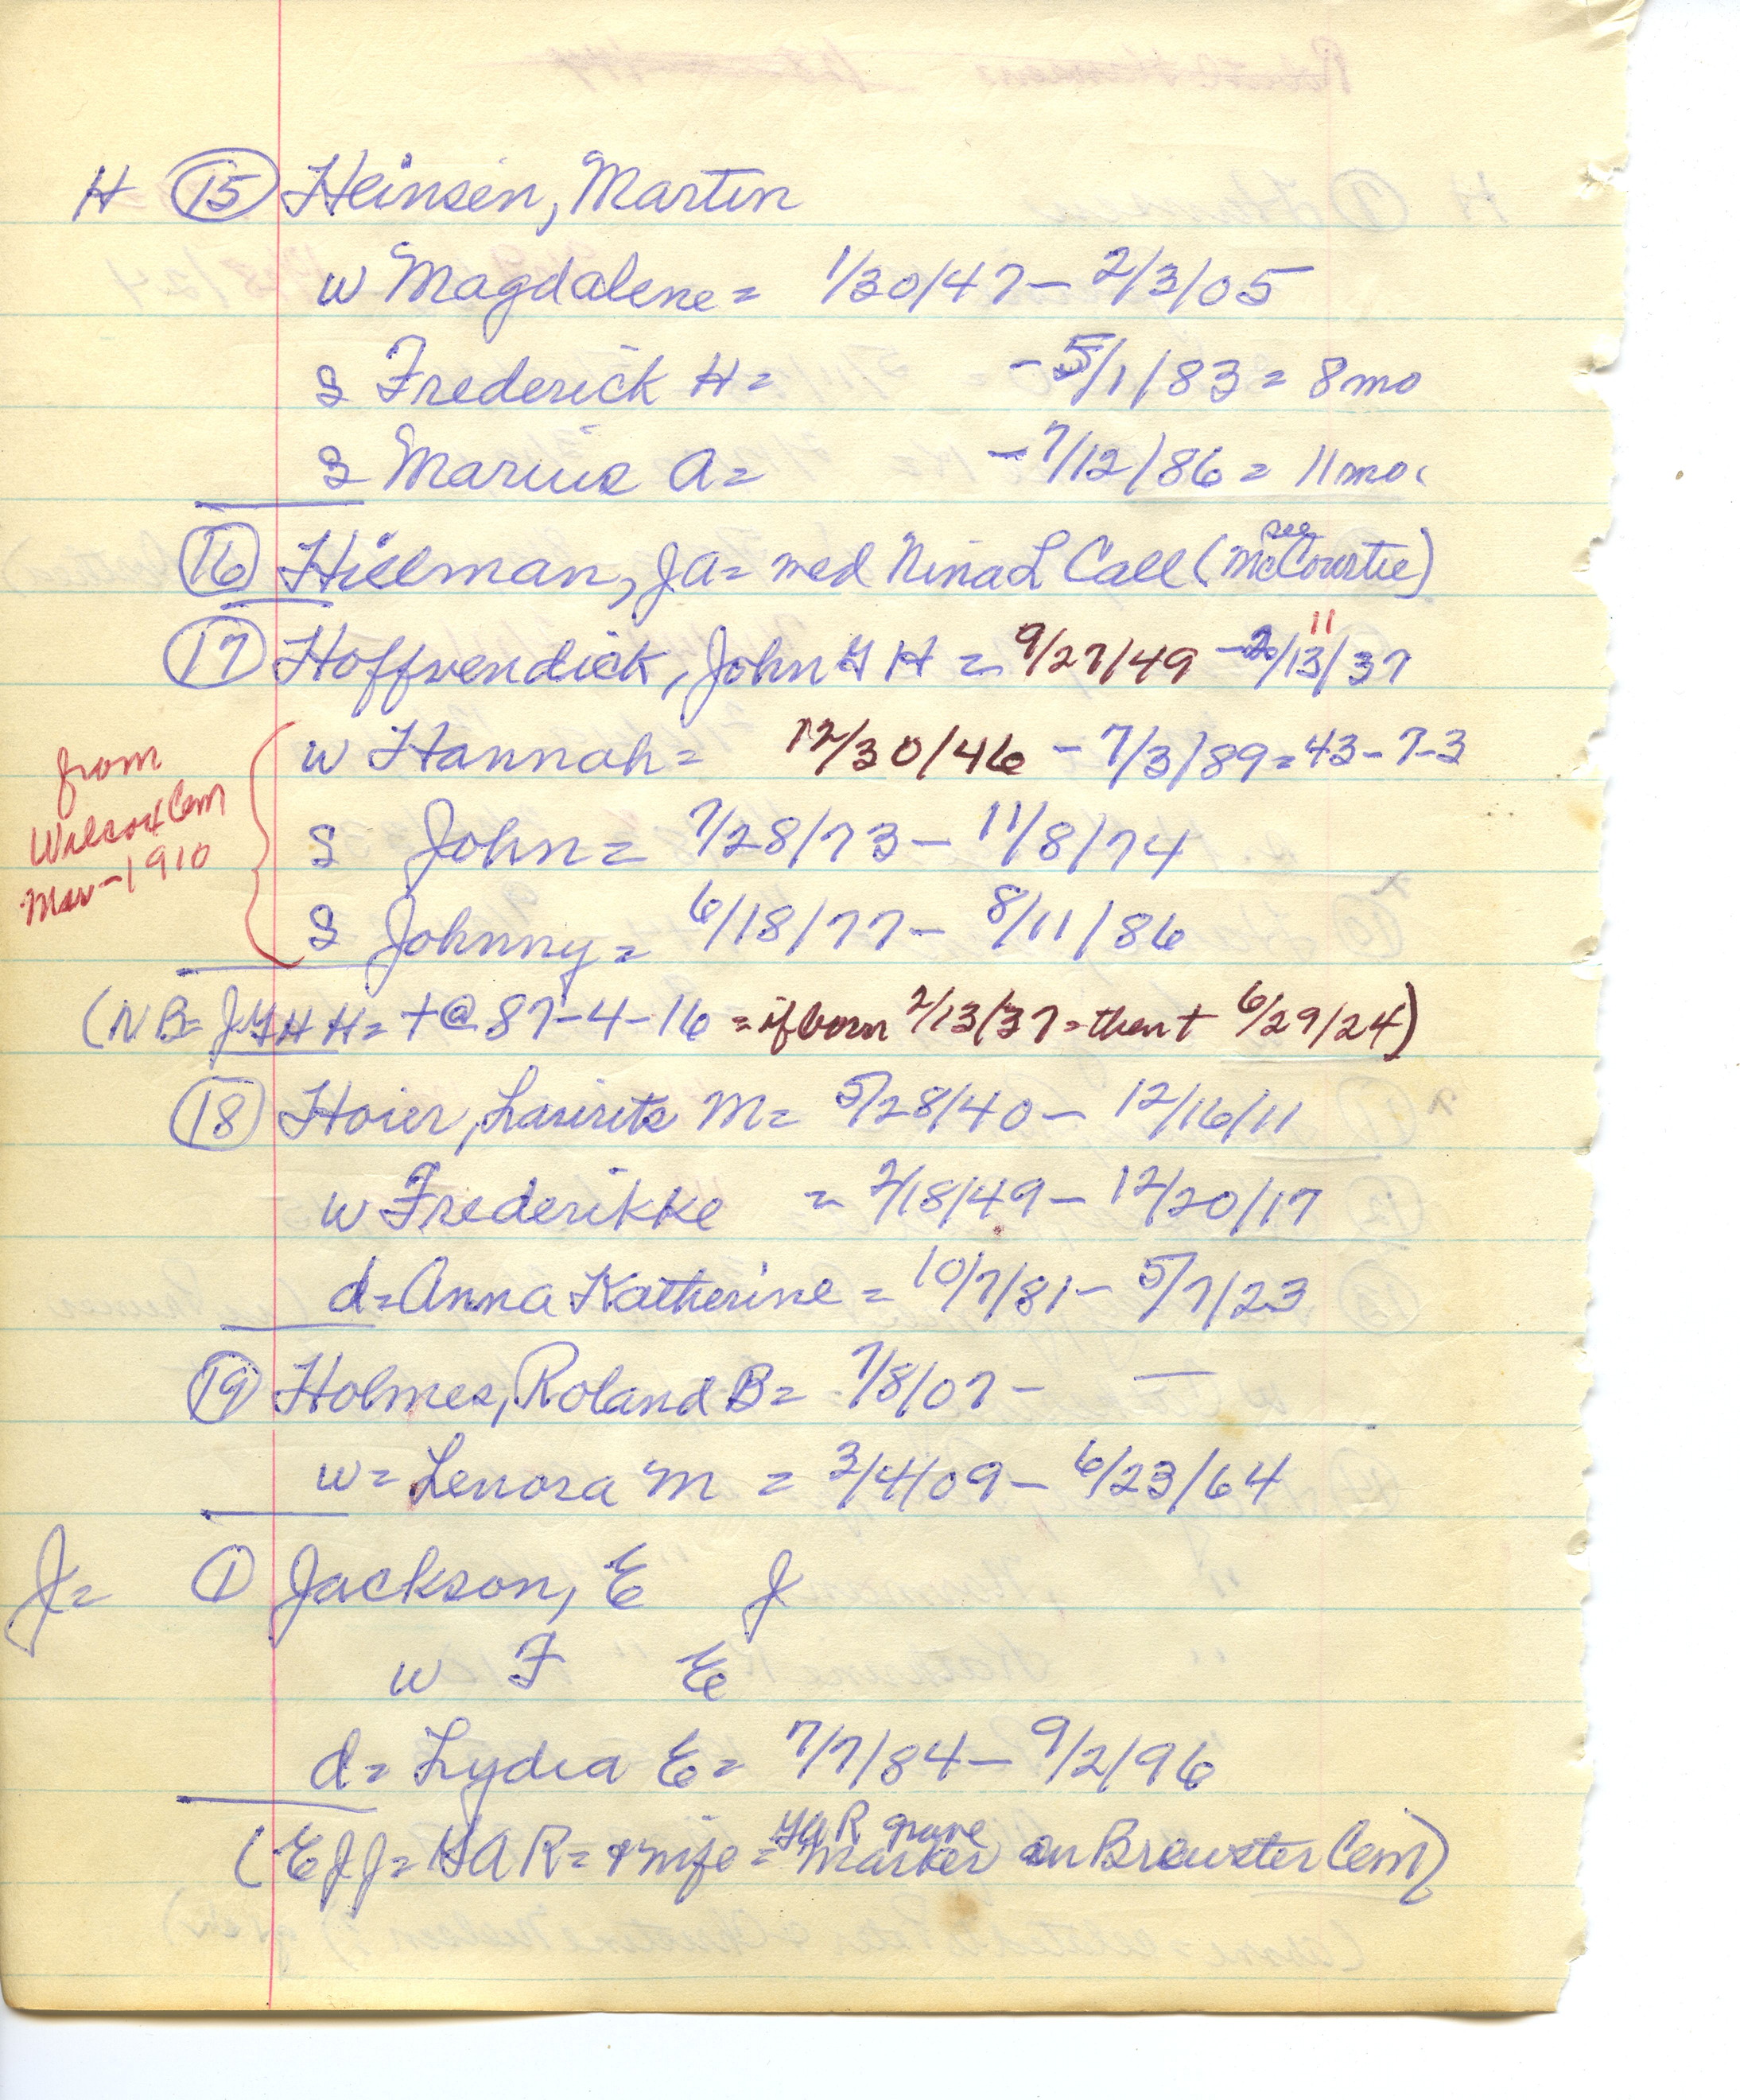 H (15) Heinsen, Martin
w Magdalene = 1/30/47 - 2/3/05
s Frederick H = - 5/1/83 = 8 mo
s Marius A = - 7/12/86 = 11 mo.
(16) Hillman, J A = med Nina L Call (see McCourtie)
(17) Hoffvendick, John G H = 9/27/49 - 2/13/37
11
w Hannah = 12/30/46 - 7/3/89 = 43-7-3
from
Wilcox Cem
Mar-1910
s John = 7/28/73 - 11/8/74
s Johnny = 6/18/77 - 8/11/86
(NB = J G H H = + @ 87-4-16 = if born 2/13/37 = then + 6/29/24)
(18) Hoier, Laurits M = 5/28/40 - 12/16/11
w Frederikke = 2/18/49 - 12/20/17
d = Anna Katherine = 10/7/81 - 5/7/23
(19) Holmes, Roland B = 7/8/07 - —
w = Lenora M = 3/4/09 - 6/23/64
J = (1) Jackson, E J
w F E
d = Lydia E = 7/7/84 - 9/2/96
(E J J = GAR = & wife = GAR grave marker in Brewster Cem)